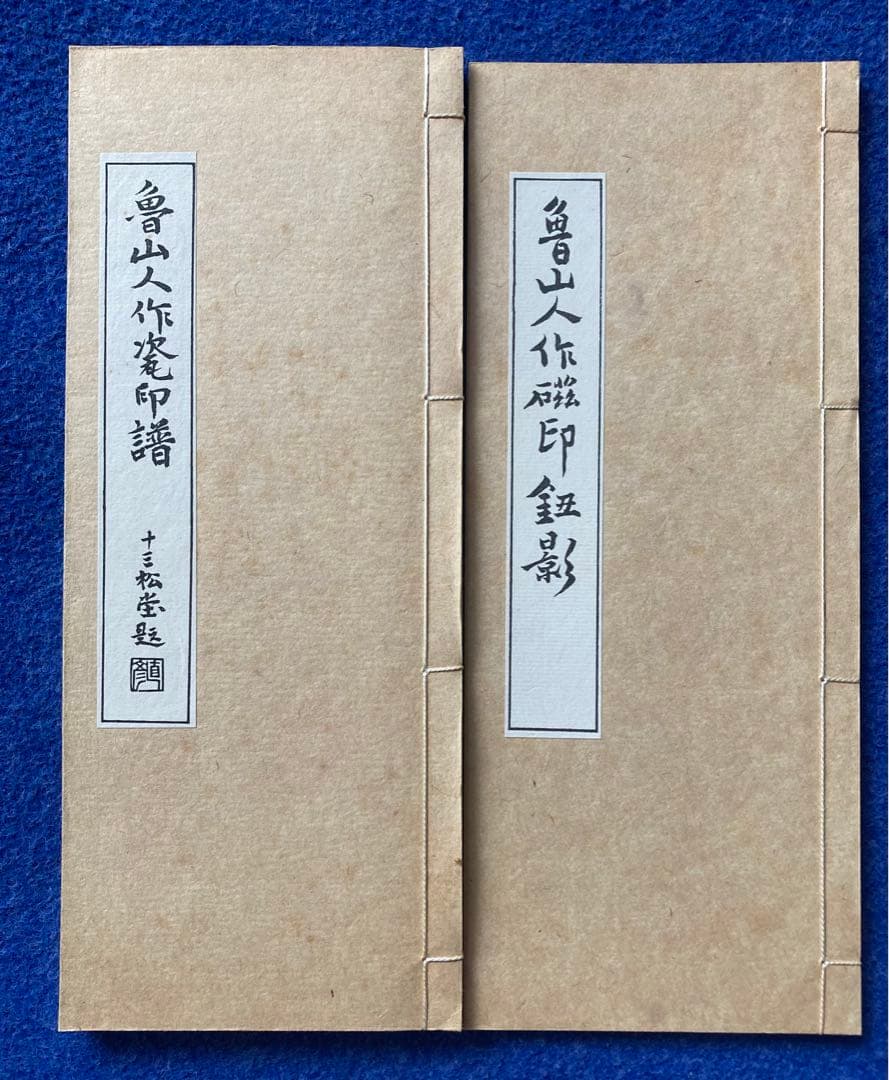 魯山人作瓷印譜
十三松堂題
魯山人作磁印鈕影